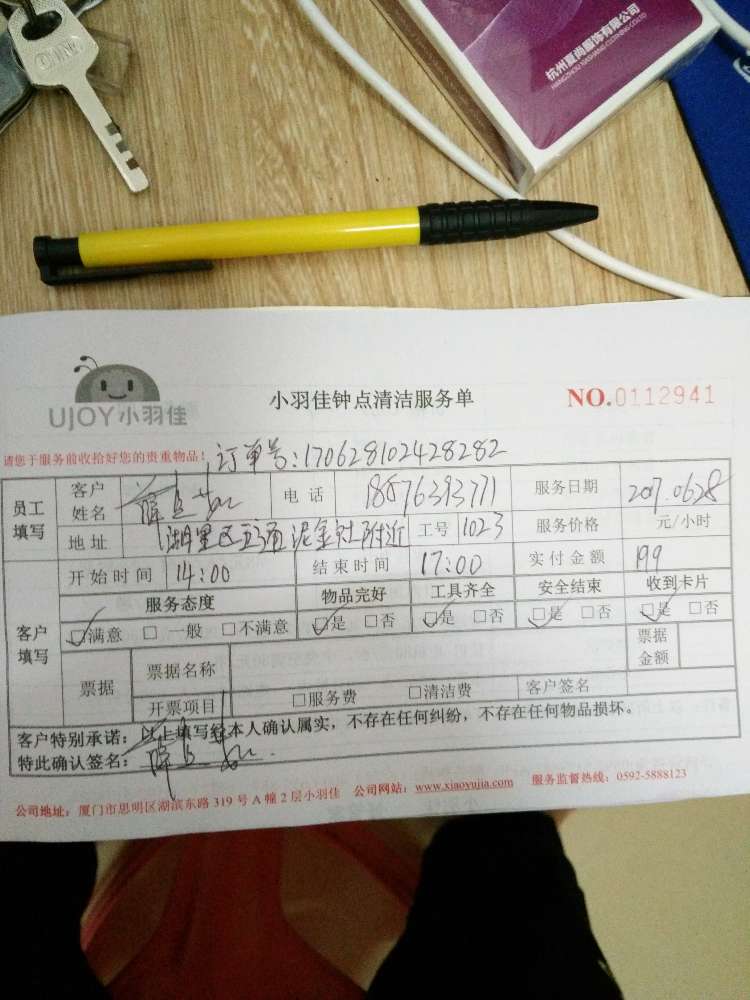 杭州夏尚服饰有限公司
HANGZHOU XIASHANG CLOTHING CO.,LTD
UJOY小羽佳
小羽佳钟点清洁服务单
NO.0112941
请您于服务前收拾好您的贵重物品!
订单号:170628102428282
员工填写 客户姓名 电话 18876393771 服务日期 2017.0628
地址 湖里区 附近 工号 1023 服务价格 元/小时
客户填写 开始时间 14:00 结束时间 17:00 实付金额 199
服务态度 物品完好 工具齐全 安全结束 收到卡片
☑满意 □一般 □不满意 ☑是 □否 ☑是 □否 ☑是 □否 ☑是 □否
票据 票据名称 票据金额
开票项目 □服务费 □清洁费 客户签名
客户特别承诺:以上填写经本人确认属实,不存在任何纠纷,不存在任何物品损坏。
特此确认签名:
公司地址:厦门市思明区湖滨东路 319 号 A 幢 2 层小羽佳 公司网站:www.xiaoyujia.com 服务监督热线:0592-5888123